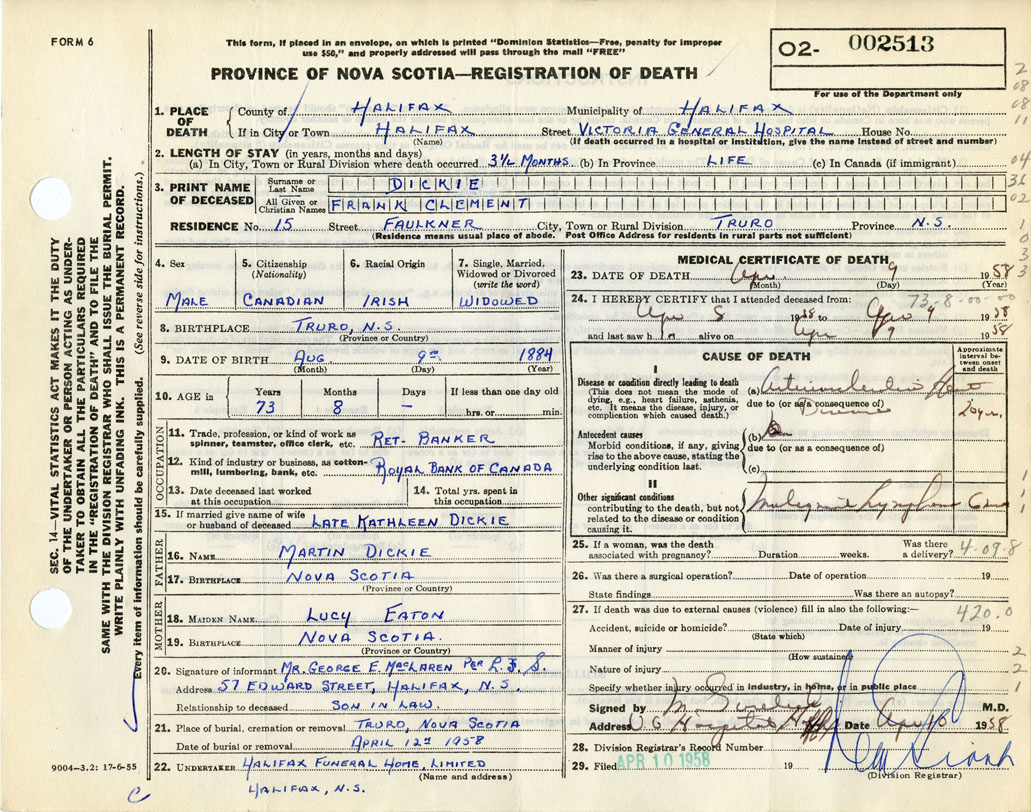 FORM 6
This form, if placed in an envelope, on which is printed "Dominion Statistics—Free, penalty for improper
use $50," and properly addressed will pass through the mail "FREE"
PROVINCE OF NOVA SCOTIA—REGISTRATION OF DEATH
02- 002513
For use of the Department only
1. PLACE OF DEATH
County of HALIFAX Municipality of HALIFAX
If in City or Town HALIFAX Street VICTORIA GENERAL HOSPITAL House No.
(Name) (If death occurred in a hospital or institution, give the name instead of street and number)
2. LENGTH OF STAY (in years, months and days)
(a) In City, Town or Rural Division where death occurred 3½ MONTHS (b) In Province LIFE (c) In Canada (if immigrant)
3. PRINT NAME OF DECEASED
Surname or Last Name DICKIE
All Given or Christian Names FRANK CLEMENT
RESIDENCE No. 15 Street FAULKNER City, Town or Rural Division TRURO Province N.S.
(Residence means usual place of abode. Post Office Address for residents in rural parts not sufficient)
4. Sex
MALE
5. Citizenship (Nationality)
CANADIAN
6. Racial Origin
IRISH
7. Single, Married, Widowed or Divorced (write the word)
WIDOWED
8. BIRTHPLACE TRURO, N.S.
(Province or Country)
9. DATE OF BIRTH AUG 9th 1884
(Month) (Day) (Year)
10. AGE in
Years Months Days If less than one day old
73 8 — hrs. or min.
OCCUPATION
11. Trade, profession, or kind of work as spinner, teamster, office clerk, etc. RET- BANKER
12. Kind of industry or business, as cotton-mill, lumbering, bank, etc. ROYAL BANK OF CANADA
13. Date deceased last worked at this occupation
14. Total yrs. spent in this occupation
15. If married give name of wife or husband of deceased LATE KATHLEEN DICKIE
FATHER
16. NAME MARTIN DICKIE
17. BIRTHPLACE NOVA SCOTIA
(Province or Country)
MOTHER
18. MAIDEN NAME LUCY EATON
19. BIRTHPLACE NOVA SCOTIA.
(Province or Country)
20. Signature of informant MR. GEORGE E. MacLAREN PER
Address 57 EDWARD STREET, HALIFAX, N.S.
Relationship to deceased SON IN LAW.
21. Place of burial, cremation or removal TRURO, NOVA SCOTIA
Date of burial or removal APRIL 12th 1958
22. UNDERTAKER HALIFAX FUNERAL HOME, LIMITED
(Name and address)
HALIFAX, N.S.
MEDICAL CERTIFICATE OF DEATH
23. DATE OF DEATH Apr 9 1958
(Month) (Day) (Year)
24. I HEREBY CERTIFY that I attended deceased from:
73-8-00-00
Apr 1958 to Apr 9 1958
and last saw h alive on Apr 9 1958
CAUSE OF DEATH
Approximate interval between onset and death
I
Disease or condition directly leading to death
(This does not mean the mode of dying, e.g., heart failure, asthenia, etc. It means the disease, injury, or complication which caused death.)
(a) Heart
due to (or as a consequence of)
20 yrs.
Antecedent causes
Morbid conditions, if any, giving rise to the above cause, stating the underlying condition last.
(b)
due to (or as a consequence of)
(c)
II
Other significant conditions
contributing to the death, but not related to the disease or condition causing it.
Malignant
25. If a woman, was the death associated with pregnancy? Duration weeks. Was there a delivery?
4-09-8
26. Was there a surgical operation? Date of operation 19
State findings Was there an autopsy?
27. If death was due to external causes (violence) fill in also the following:—
420.0
Accident, suicide or homicide? Date of injury 19
(State which)
Manner of injury
(How sustained)
Nature of injury
Specify whether injury occurred in industry, in home, or in public place
Signed by M. M.D.
Address V.G. Hospital Date Apr 10 1958
28. Division Registrar's Record Number
29. Filed APR 10 1958 19
(Division Registrar)
SEC. 14—VITAL STATISTICS ACT MAKES IT THE DUTY
OF THE UNDERTAKER OR PERSON ACTING AS UNDER-
TAKER TO OBTAIN ALL THE PARTICULARS REQUIRED
IN THE "REGISTRATION OF DEATH" AND TO FILE THE
SAME WITH THE DIVISION REGISTRAR WHO SHALL ISSUE THE BURIAL PERMIT.
WRITE PLAINLY WITH UNFADING INK. THIS IS A PERMANENT RECORD.
Every item of information should be carefully supplied. (See reverse side for instructions.)
9004—3.2: 17-6-55